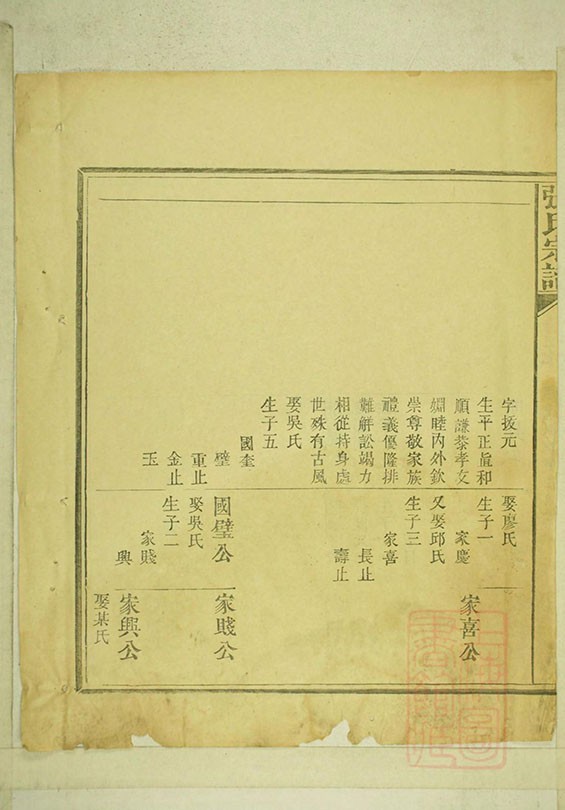 張氏宗譜
字拔元
生平正眞和
順謙恭孝友
婣睦內外欽
崇尊敬家族
禮義優隆排
難解訟竭力
相從持身處
世殊有古風
娶吳氏
生子五
國奎
璧
重止
金止
玉
娶廖氏
生子一
家慶
又娶邱氏
生子三
家喜
長止
壽止
國璧公
娶吳氏
生子二
家賤
興
家喜公
家賤公
家興公
娶某氏